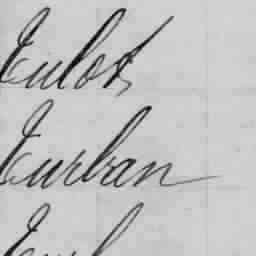 Eulot
Eurban